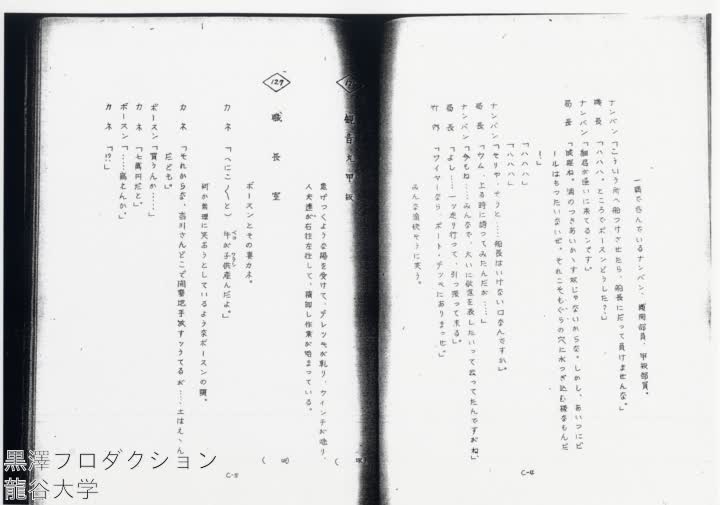 一隅で呑んでいるナンバン、機関部員、甲板部員。
ナンバン「こういう所へ船つけさせたら、船長にだって負けませんな。」
職長「ハハハ。ところでボースンどうした？」
ナンバン「細君が逢いに来てるンです」
局長「成程ね。酒のつきあいか〜す奴じゃないからな。しかし、あいつにビ
ールはもったいないぜ。それこそもぐらの穴に水つぎ込む様なもんだ
！」
「ハハハハ」
「ハハハハ」
ナンバン「そりゃ、そうと……船長はいけない口なんですか。」
局長「ウム、上る時に誘ってみたんだが……」
ナンバン「今もね……みんなで、大いに敬意を表したいって云ってたんですがね」
局長「よし……一ッ走り行って、引っ張って来る。」
竹内「ワイヤーなら、ボート・デッペにありまっせ。」
みんな愉快そうに笑う。
観音丸甲板
焦げつくような陽を受けて、デレッキが軋り、ウィンチが唸り、
人夫達が右往左往して、積卸し作業が始まっている。
129
職長室
ボースンとその妻カネ。
カネ「へにこ〳〵と〵年が子供産んだよ。」
何か無理に笑おうとしているようなボースンの顔。
カネ「それからな、吉川さんどこで開墾地手放すッうてるが……土はえゝん
だども。」
ボースン「買うんか……」
カネ「七萬円だと。」
ボースン「……高えんか。」
カネ「!?」
C-4
C-5
黒澤プロダクション
龍谷大学